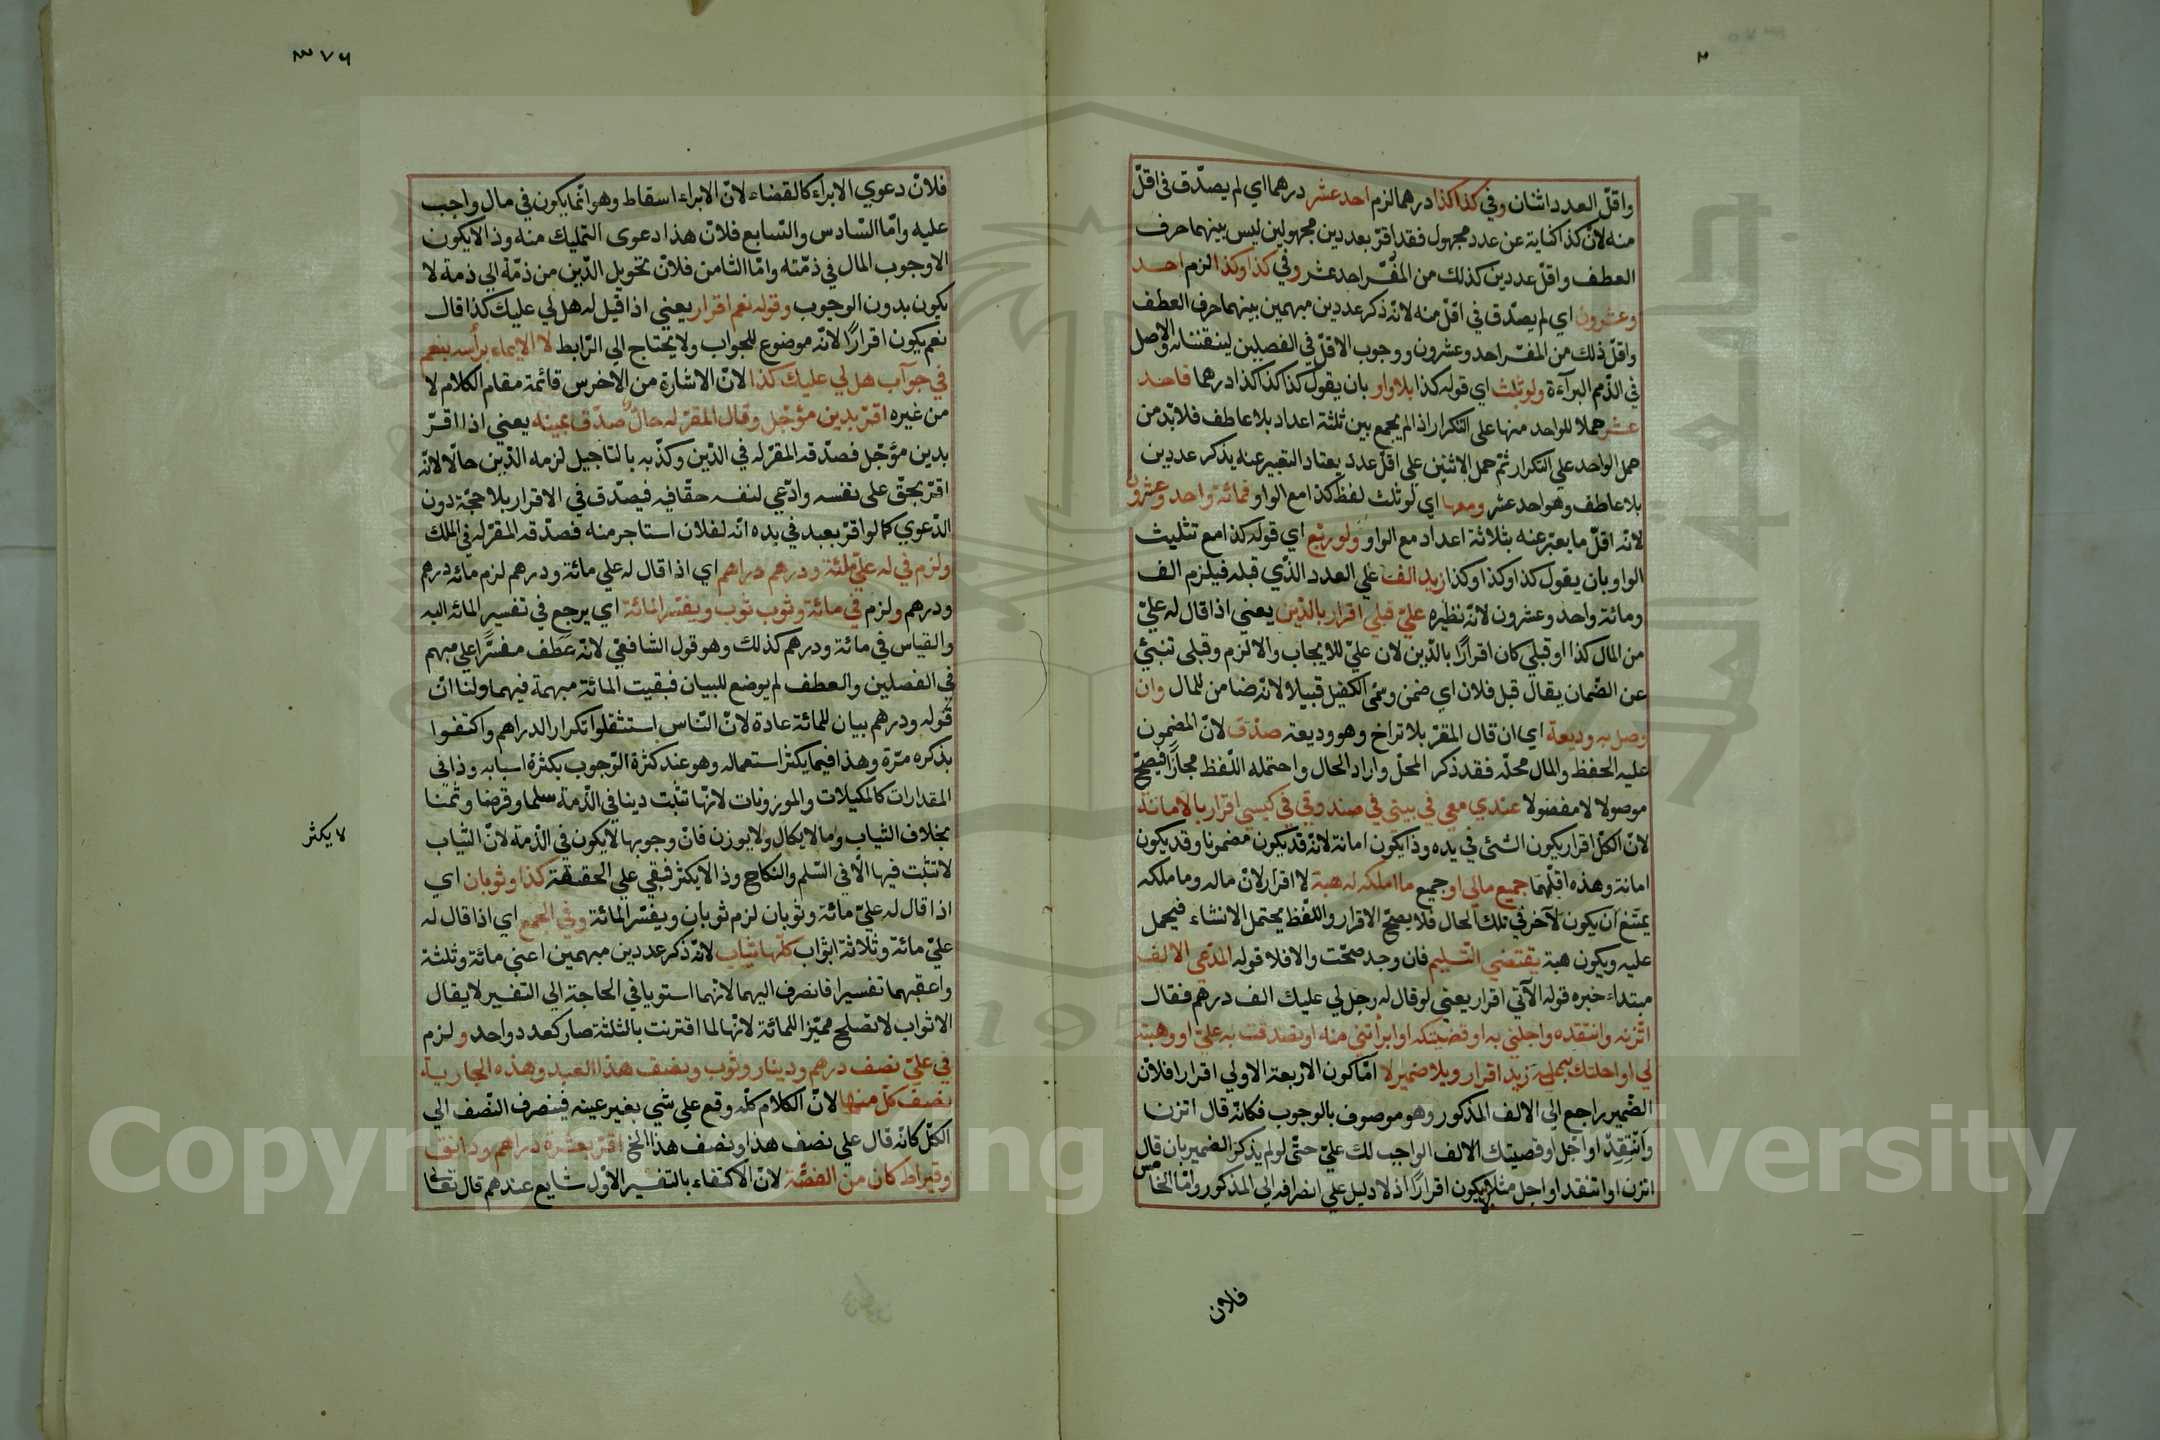 ٢
واقلّ العدد اثنان وفي كذا كذا درهما لزم احد عشر درهما اي لم يصدّق في اقلّ
منه لانّ كذا كناية عن عدد مجهول فقد اقرّ بعددين مجهولين ليس بينهما حرف
العطف واقلّ عددين كذلك من المفسّر احد عشر وفي كذا وكذا لزم احد
وعشرون اي لم يصدّق في اقلّ منه لانّه ذكر عددين مبهمين بينهما حرف العطف
واقلّ ذلك من المفسّر احد وعشرون ووجوب الاقلّ في الفصلين لتيقّنه والاصل
في الذّمم البرآءة ولو ثلّث اي قوله كذا بلا واو بان يقول كذا كذا كذا درهما فاحد
عشر حملا للواحد منها على التكرار اذ لم يجمع بين ثلثة اعداد بلا عاطف فلا بدّ من
حمل الواحد علي التكرار ثمّ حمل الاثنين علي اقلّ عدد يعتاد التعبير عنه بذكر عددين
بلا عاطف وهو احد عشر ومعها اي لو ثلث لفظ كذا مع الواو فمائة واحد وعشرون
لانّه اقلّ ما يعبّر عنه بثلاثة اعداد مع الواو ولو ربّع اي قوله كذا مع تثليث
الواو بان يقول كذا وكذا وكذا زيد الف علي العدد الذّي قبله فيلزم الف
ومائة واحد وعشرون لانّه نظيره عليّ قبلي اقرار بالدّين يعني اذا قال له عليّ
من المال كذا او قبلي كان اقرارًا بالدّين لان عليّ للايجاب والالزم وقبلي تنبئي
عن الضّمان يقال قبل فلان اي ضمن وسمّي الكفيل قبيلا لانّه ضامن للمال وان
وصل به وديعة اي ان قال المقرّ بلا تراخ وهو وديعة صدّق لانّ المضمون
عليه الحفظ والمال محلّه فقد ذكر المحلّ واراد الحال واحتمله اللّفظ مجازًا فيصحّ
موصولا لا مفصولا عندي معي في بيتي في صندوقي في كيسي اقرار بالامانة
لانّ الكلّ اقرار بكون الشّئ في يده وذا يكون امانة لانّه قد يكون مضمونا وقد يكون
امانة وهذه اقلّهما جميع مالي او جميع ما املكه له هبة لا اقرار لانّ ماله وما ملكه
يمتنع ان يكون لآخر في تلك الحال فلا يصحّ الاقرار واللّفظ يحتمل الانشاء فيحمل
عليه ويكون هبة يقتضي التّسليم فان وجد صحّت والا فلا قوله المدّعي الالف
مبتداء خبره قوله الآتي اقرار يعني لو قال له رجل لي عليك الف درهم فقال
اتّزنه وانتقده واجلني به او قضيتكه او ابرأتني منه او تصدقت به عليّ او وهبته
لي او احلتك به علي زيد اقرار وبلا ضمير لا امّا كون الاربعة الاولي اقرارا فلانّ
الضّمير راجع الي الالف المذكور وهو موصوف بالوجوب فكانّه قال اتزن
وانتقد او اجّل او قضيتك الالف الواجب لك عليّ حتّي لو لم يذكر الضمير بان قال
اتزن او انتقد او اجل مثلا لا يكون اقرارًا اذ لا دليل علي انصرافه الي المذكور وامّا الخامس
فلان
٣٧٦
فلانّ دعوي الابراء كالقضاء لانّ الابراء اسقاط وهو انّما يكون في مال واجب
عليه وامّا السّادس والسّابع فلانّ هذا دعوى التمليك منه وذا لا يكون
الا وجوب المال في ذمّته وامّا الثامن فلانّ تحويل الدّين من ذمّة الي ذمة لا
يكون بدون الوجوب وقوله نعم اقرار يعني اذا قيل له هل لي عليك كذا قال
نعم يكون اقرارًا لانّه موضوع للجواب ولا يحتاج الي الرّابط لا الايماء برأسه بنعم
في جوآب هل لي عليك كذا لانّ الاشارة من الاخرس قائمة مقام الكلام لا
من غيره اقرّ بدين مؤجّل وقال المقرّ له حالّ صدّق بيمينه يعني اذا اقرّ
بدين مؤجّل فصدّقه المقرّ له في الدّين وكذّبه بالتاجيل لزمه الدّين حالّا لانّه
اقرّ بحقّ على نفسه وادّعي لنفسه حقّا فيه فيصدّق في الاقرار بلا حجّة دون
الدّعوي كما لو اقرّ بعبد في يده انّه لفلان استاجر منه فصدّقه المقرّ له في الملك
ولزم في له عليّ مائة ودرهم دراهم اي اذا قال له علي مائة ودرهم لزم مائة درهم
ودرهم ولزم في مائة وثوب ثوب ويفسّر المائة اي يرجع في تفسير المائه اليه
والقياس في مائة ودرهم كذلك وهو قول الشافعيّ لانّه عطف مفسّرًا علي مبهم
في الفصلين والعطف لم يوضع للبيان فبقيت المائة مبهمة فيهما ولنا انّ
قوله ودرهم بيان للمائة عادة لانّ النّاس استثقلوا تكرار الدراهم واكتفوا
بذكره مرّة وهذا فيما يكثر استعماله وهو عند كثرة الوجوب بكثرة اسبابه وذا في
المقدارات كالمكيلات والموزونات لانّها تثبت دينا في الذّمة سلما وقرضا وثمنا
بخلاف الثياب وما لا يكال ولا يوزن فانّ وجوبها لا يكون في الذّمة لانّ الثّياب
لا يكثر
لا تثبّت فيها الّا في السّلم والنكاح وذا لا يكثر فبقي علي الحقيقة كذا وثوبان اي
اذا قال له عليّ مائة وثوبان لزم ثوبان ويفسّر المائة وفي الجمع اي اذا قال له
عليّ مائة وثلاثة اثواب كلّها ثياب لانّه ذكر عددين مبهمين اعني مائة وثلثة
واعقبهما تفسيرا فانصرف اليهما لانهما استويا في الحاجة الي التفسير لا يقال
الاثواب لا تصلح مميّزا للمائة لانّها لما اقترنت بالثلثة صار كعدد واحد ولزم
في عليّ نصف درهم ودينار وثوب ونصف هذا العبد وهذه الجارية
نصف كلّ منها لانّ الكلام كلّه وقع علي شي بغير عينه فينصرف النّصف الي
الكلّ كانّه قال علي نصف هذا ونصف هذا الخ اقرّ بعشرة دراهم ودانق
وقيراط كان من الفضّة لانّ الاكتفاء بالتفسير الاوّل شايع عندهم قال تعالى